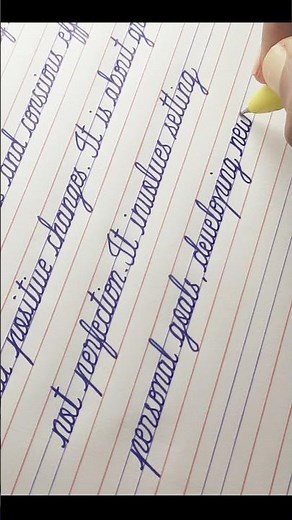 and conscious eff
positive changes. It is about gr
not perfection. It involves setting
personal goals, developing new